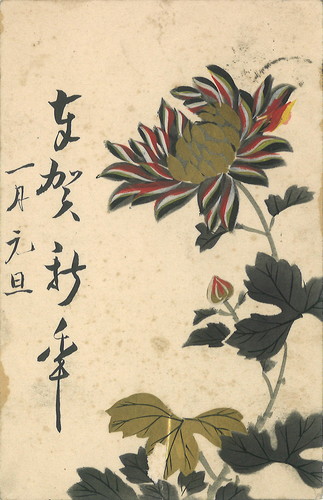 奉賀新年
一月元旦